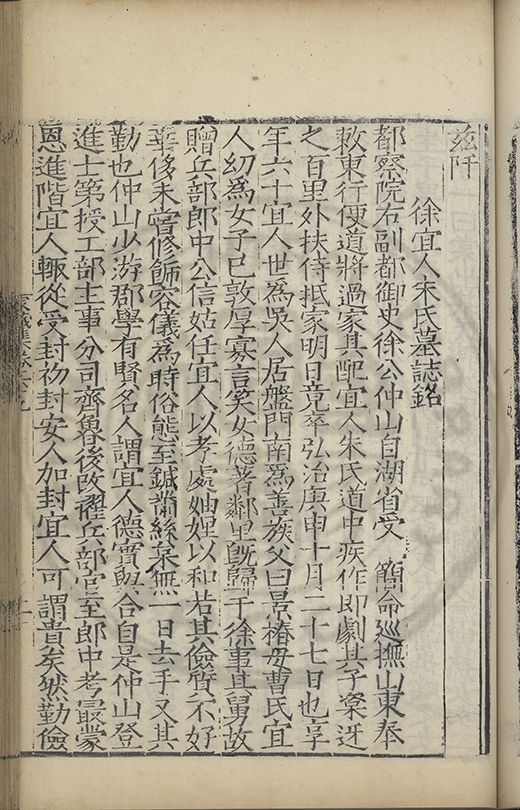 茲阡
徐宜人朱氏墓誌銘
都察院右副都御史徐公仲山自湖省受　簡命巡撫山東奉
敕東行便道將過家其配宜人朱氏道中疾作即劇其子䆃迓
之百里外扶侍抵家明日竟卒弘治庚申十月二十七日也享
年六十宜人世為吳人居盤門南為善族父曰景椿母曹氏宜
人幼為女子已敦厚寡言笑女德著鄰里旣歸于徐事其舅故
贈兵部郎中公信姑任宜人以孝處妯娌以和若其儉質不好
華侈未嘗修飾容儀為時俗態至鍼黹絲枲無一日去手又其
勤也仲山少游郡學有賢名人謂宜人德實與合自是仲山登
進士第授工部主事分司齊魯後改擢兵部官至郎中考最蒙
恩進階宜人輙從受封初封安人加封宜人可謂貴矣然勤儉